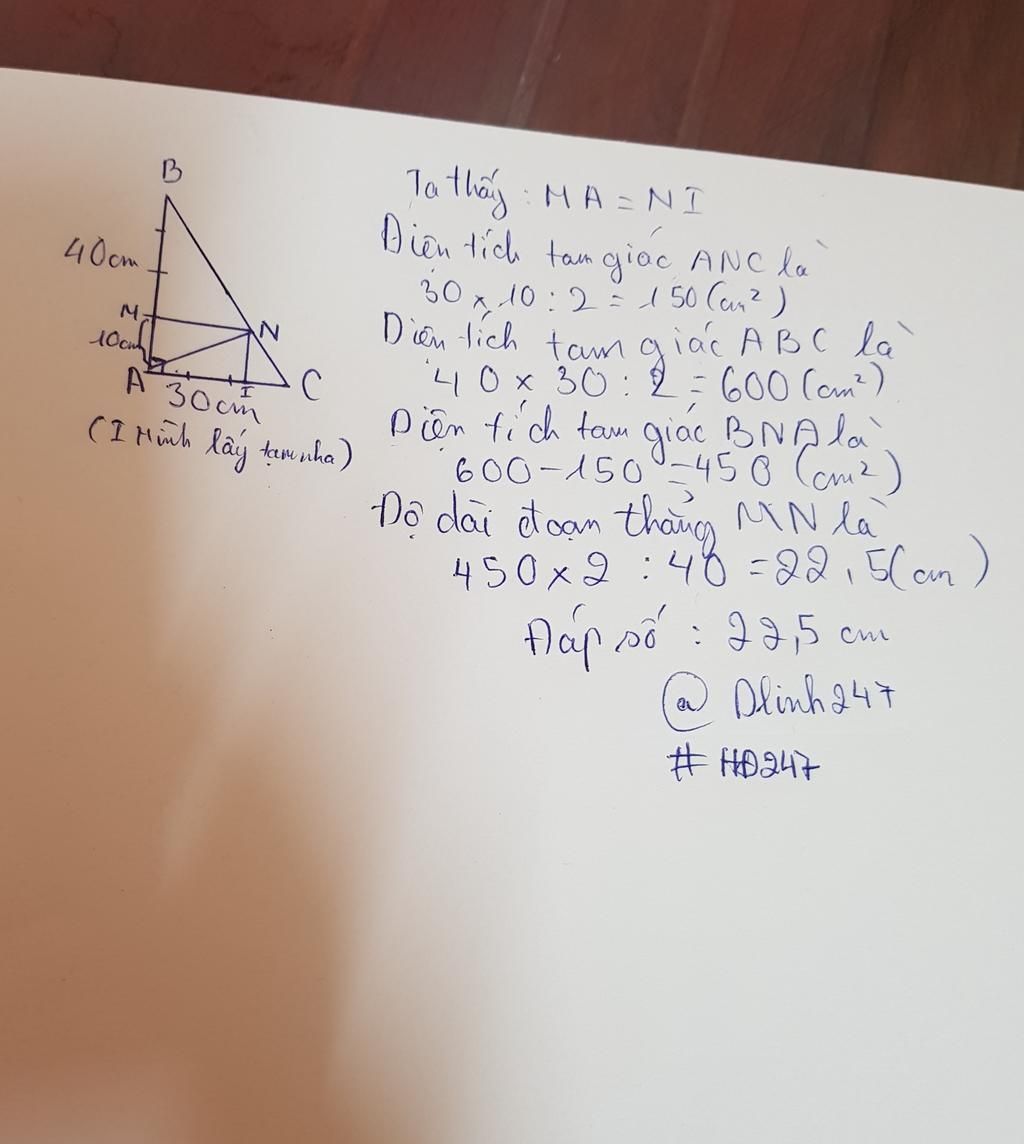 B
40cm
M
N
10cm
A
I
C
30cm
(I Mình lấy tạm nha)
Ta thấy : MA = NI
Diện tích tam giác ANC là
30 x 10 : 2 = 150 (cm²)
Diện tích tam giác ABC là
40 x 30 : 2 = 600 (cm²)
Diện tích tam giác BNA là
600 - 150 = 450 (cm²)
Độ dài đoạn thẳng MN là
450 x 2 : 40 = 22,5 (cm)
Đáp số : 22,5 cm
@ Dlinh247
# HĐ247